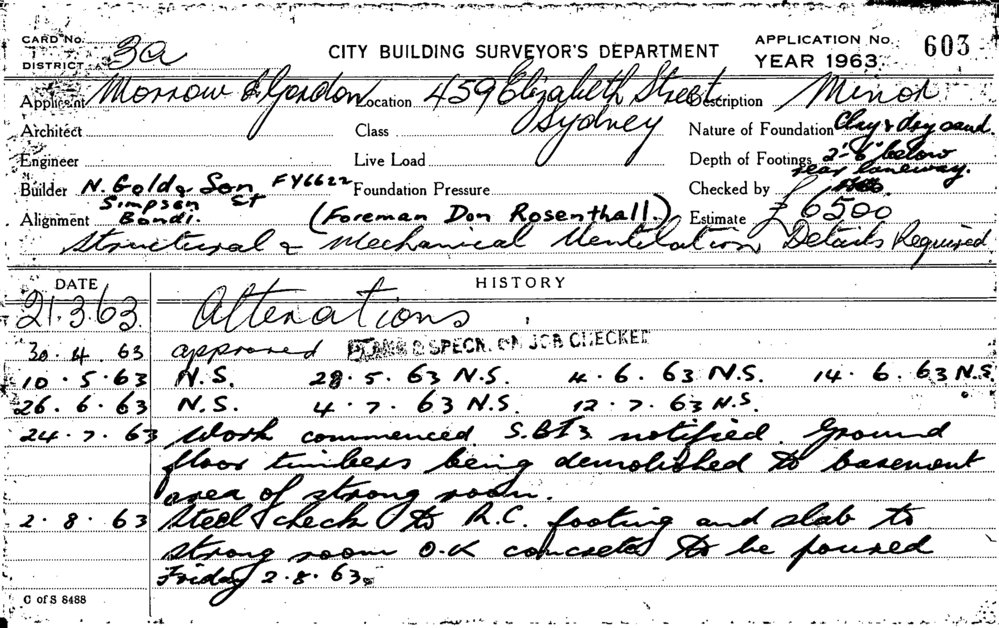 CARD No.
DISTRICT 3a
CITY BUILDING SURVEYOR'S DEPARTMENT
APPLICATION No. 603
YEAR 1963
Applicant Morrow & Gordon Location 459 Elizabeth Street Description Minor
Sydney
Architect Class Nature of Foundation Clay & dry sand.
Engineer Live Load Depth of Footings 2'-6" below
rear laneway.
Builder N. Gold & Son FY6622 Foundation Pressure Checked by
Simpson St
Alignment Bondi. (Foreman Don Rosenthall.) Estimate £6500
Structural & Mechanical Ventilation Details Required
DATE HISTORY
21.3.63 Alterations
30.4.63 approved PLANS & SPECN. ON JOB CHECKED
10.5.63 N.S. 28.5.63 N.S. 4.6.63 N.S. 14.6.63 N.S.
26.6.63 N.S. 4.7.63 N.S. 12.7.63 N.S.
24.7.63 Work commenced. S.B.I's notified. Ground
floor timbers being demolished to basement
area of strong room.
2.8.63 Steel check to R.C. footing and slab to
strong room O.K concrete to be poured
Friday 2.8.63.
C of S 8488